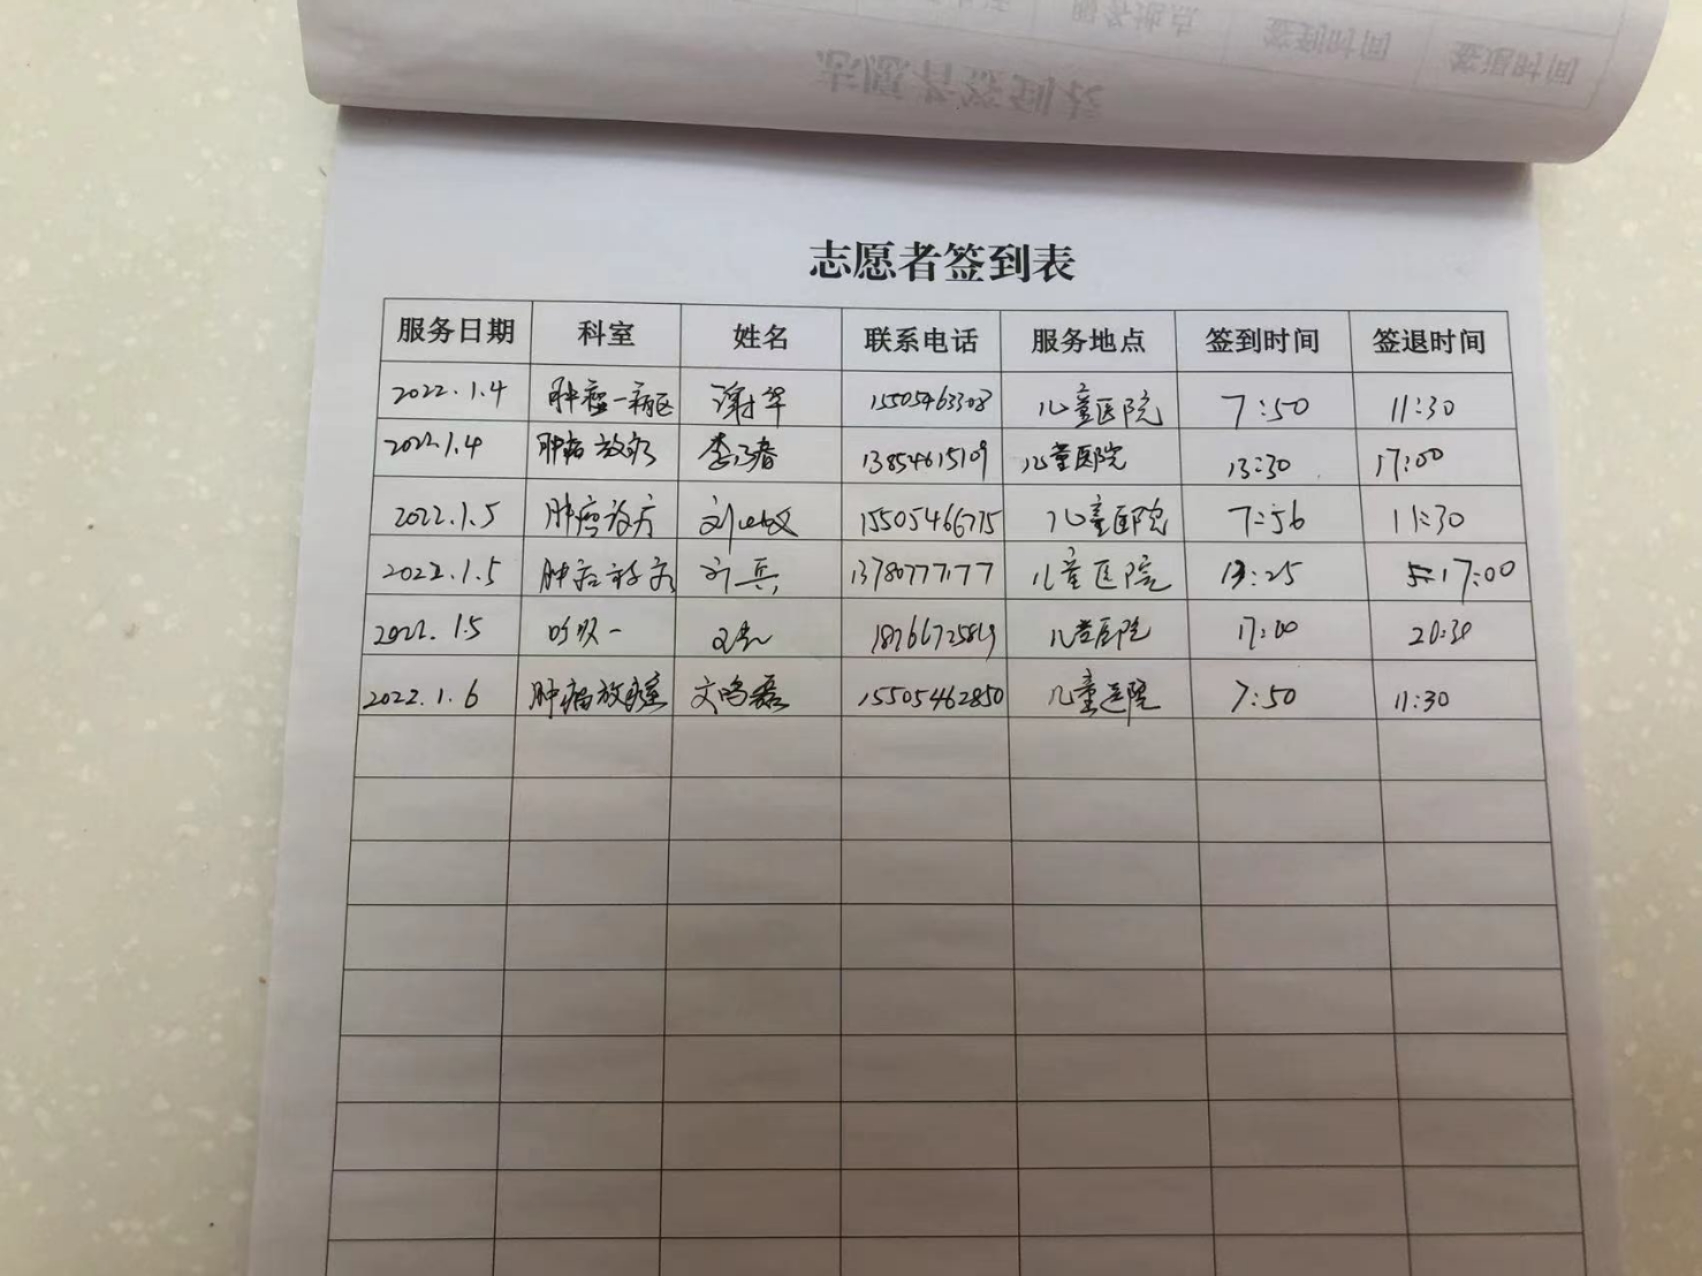 志愿者签到表
服务日期 科室 姓名 联系电话 服务地点 签到时间 签退时间
2022.1.4 肿瘤一病区 谢华 15505463308 儿童医院 7:50 11:30
2022.1.4 肿瘤放疗 13854615109 儿童医院 13:30 17:00
2022.1.5 肿瘤 15505466775 儿童医院 7:56 11:30
2022.1.5 肿瘤 13780777177 儿童医院 13:25 17:00
2022.1.5 呼吸一 儿童医院 17:00 20:30
2022.1.6 肿瘤放疗室 文鸣磊 15505462850 儿童医院 7:50 11:30